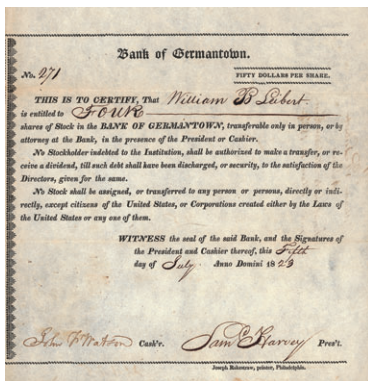 Bank of Germantown.
No. 271
FIFTY DOLLARS PER SHARE.
THIS IS TO CERTIFY, That William B Leibert
is entitled to FOUR
shares of Stock in the BANK OF GERMANTOWN, transferable only in person, or by
attorney at the Bank, in the presence of the President or Cashier.
No Stockholder indebted to the Institution, shall be authorized to make a transfer, or re-
ceive a dividend, till such debt shall have been discharged, or security, to the satisfaction of the
Directors, given for the same.
No Stock shall be assigned, or transferred to any person or persons, directly or indi-
rectly, except citizens of the United States, or Corporations created either by the Laws of
the United States or any one of them.
WITNESS the seal of the said Bank, and the Signatures of
the President and Cashier thereof, this Fifth
day of July Anno Domini 1823
John F Watson Cash'r. Saml Harvey Pres't.
Joseph Rakestraw, printer, Philadelphia.